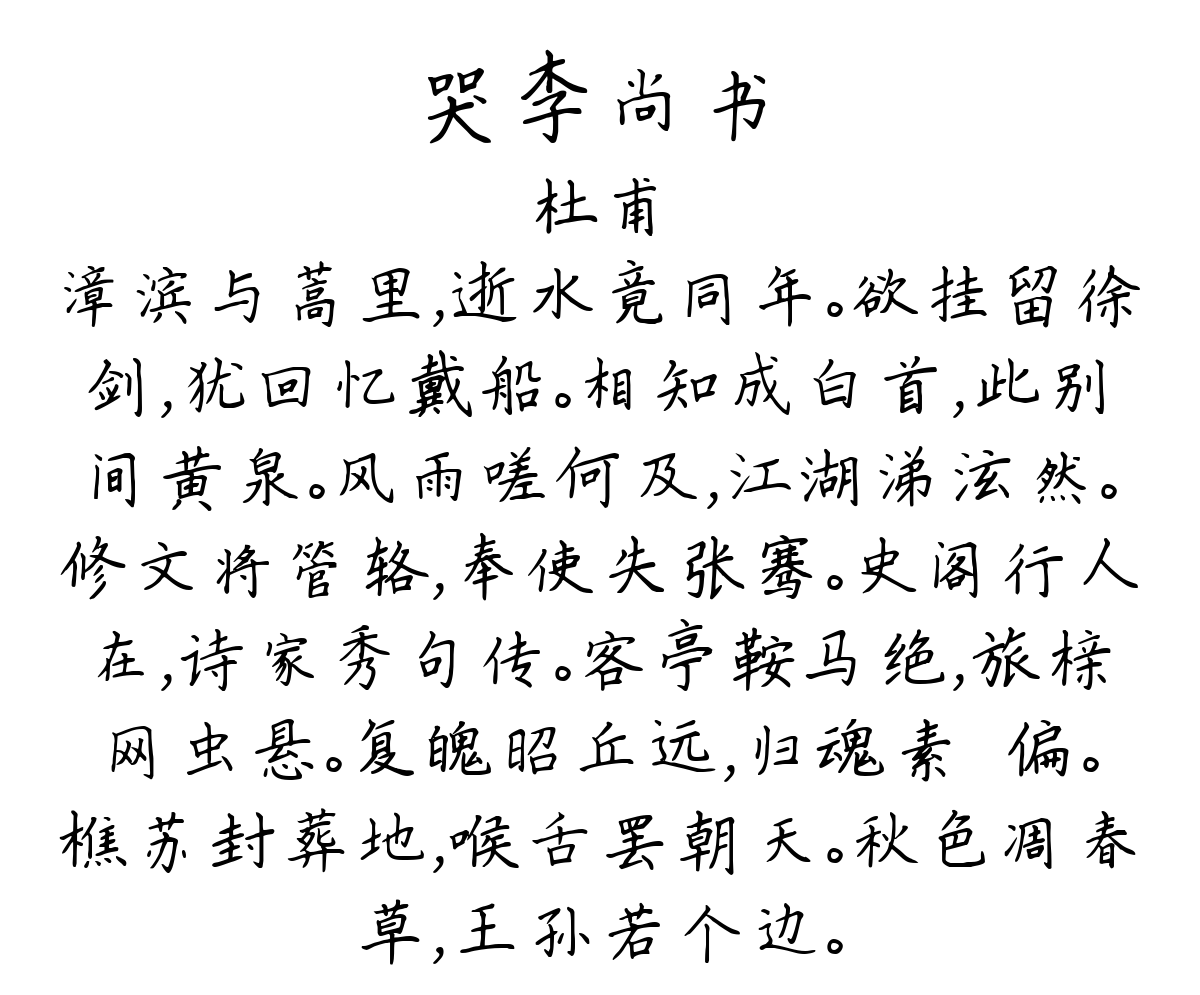 哭李尚书
杜甫
漳滨与蒿里,逝水竟同年。欲挂留徐
剑,犹回忆戴船。相知成白首,此别
间黄泉。风雨嗟何及,江湖涕泫然。
修文将管辂,奉使失张骞。史阁行人
在,诗家秀句传。客亭鞍马绝,旅榇
网虫悬。复魄昭丘远,归魂素 偏。
樵苏封葬地,喉舌罢朝天。秋色凋春
草,王孙若个边。